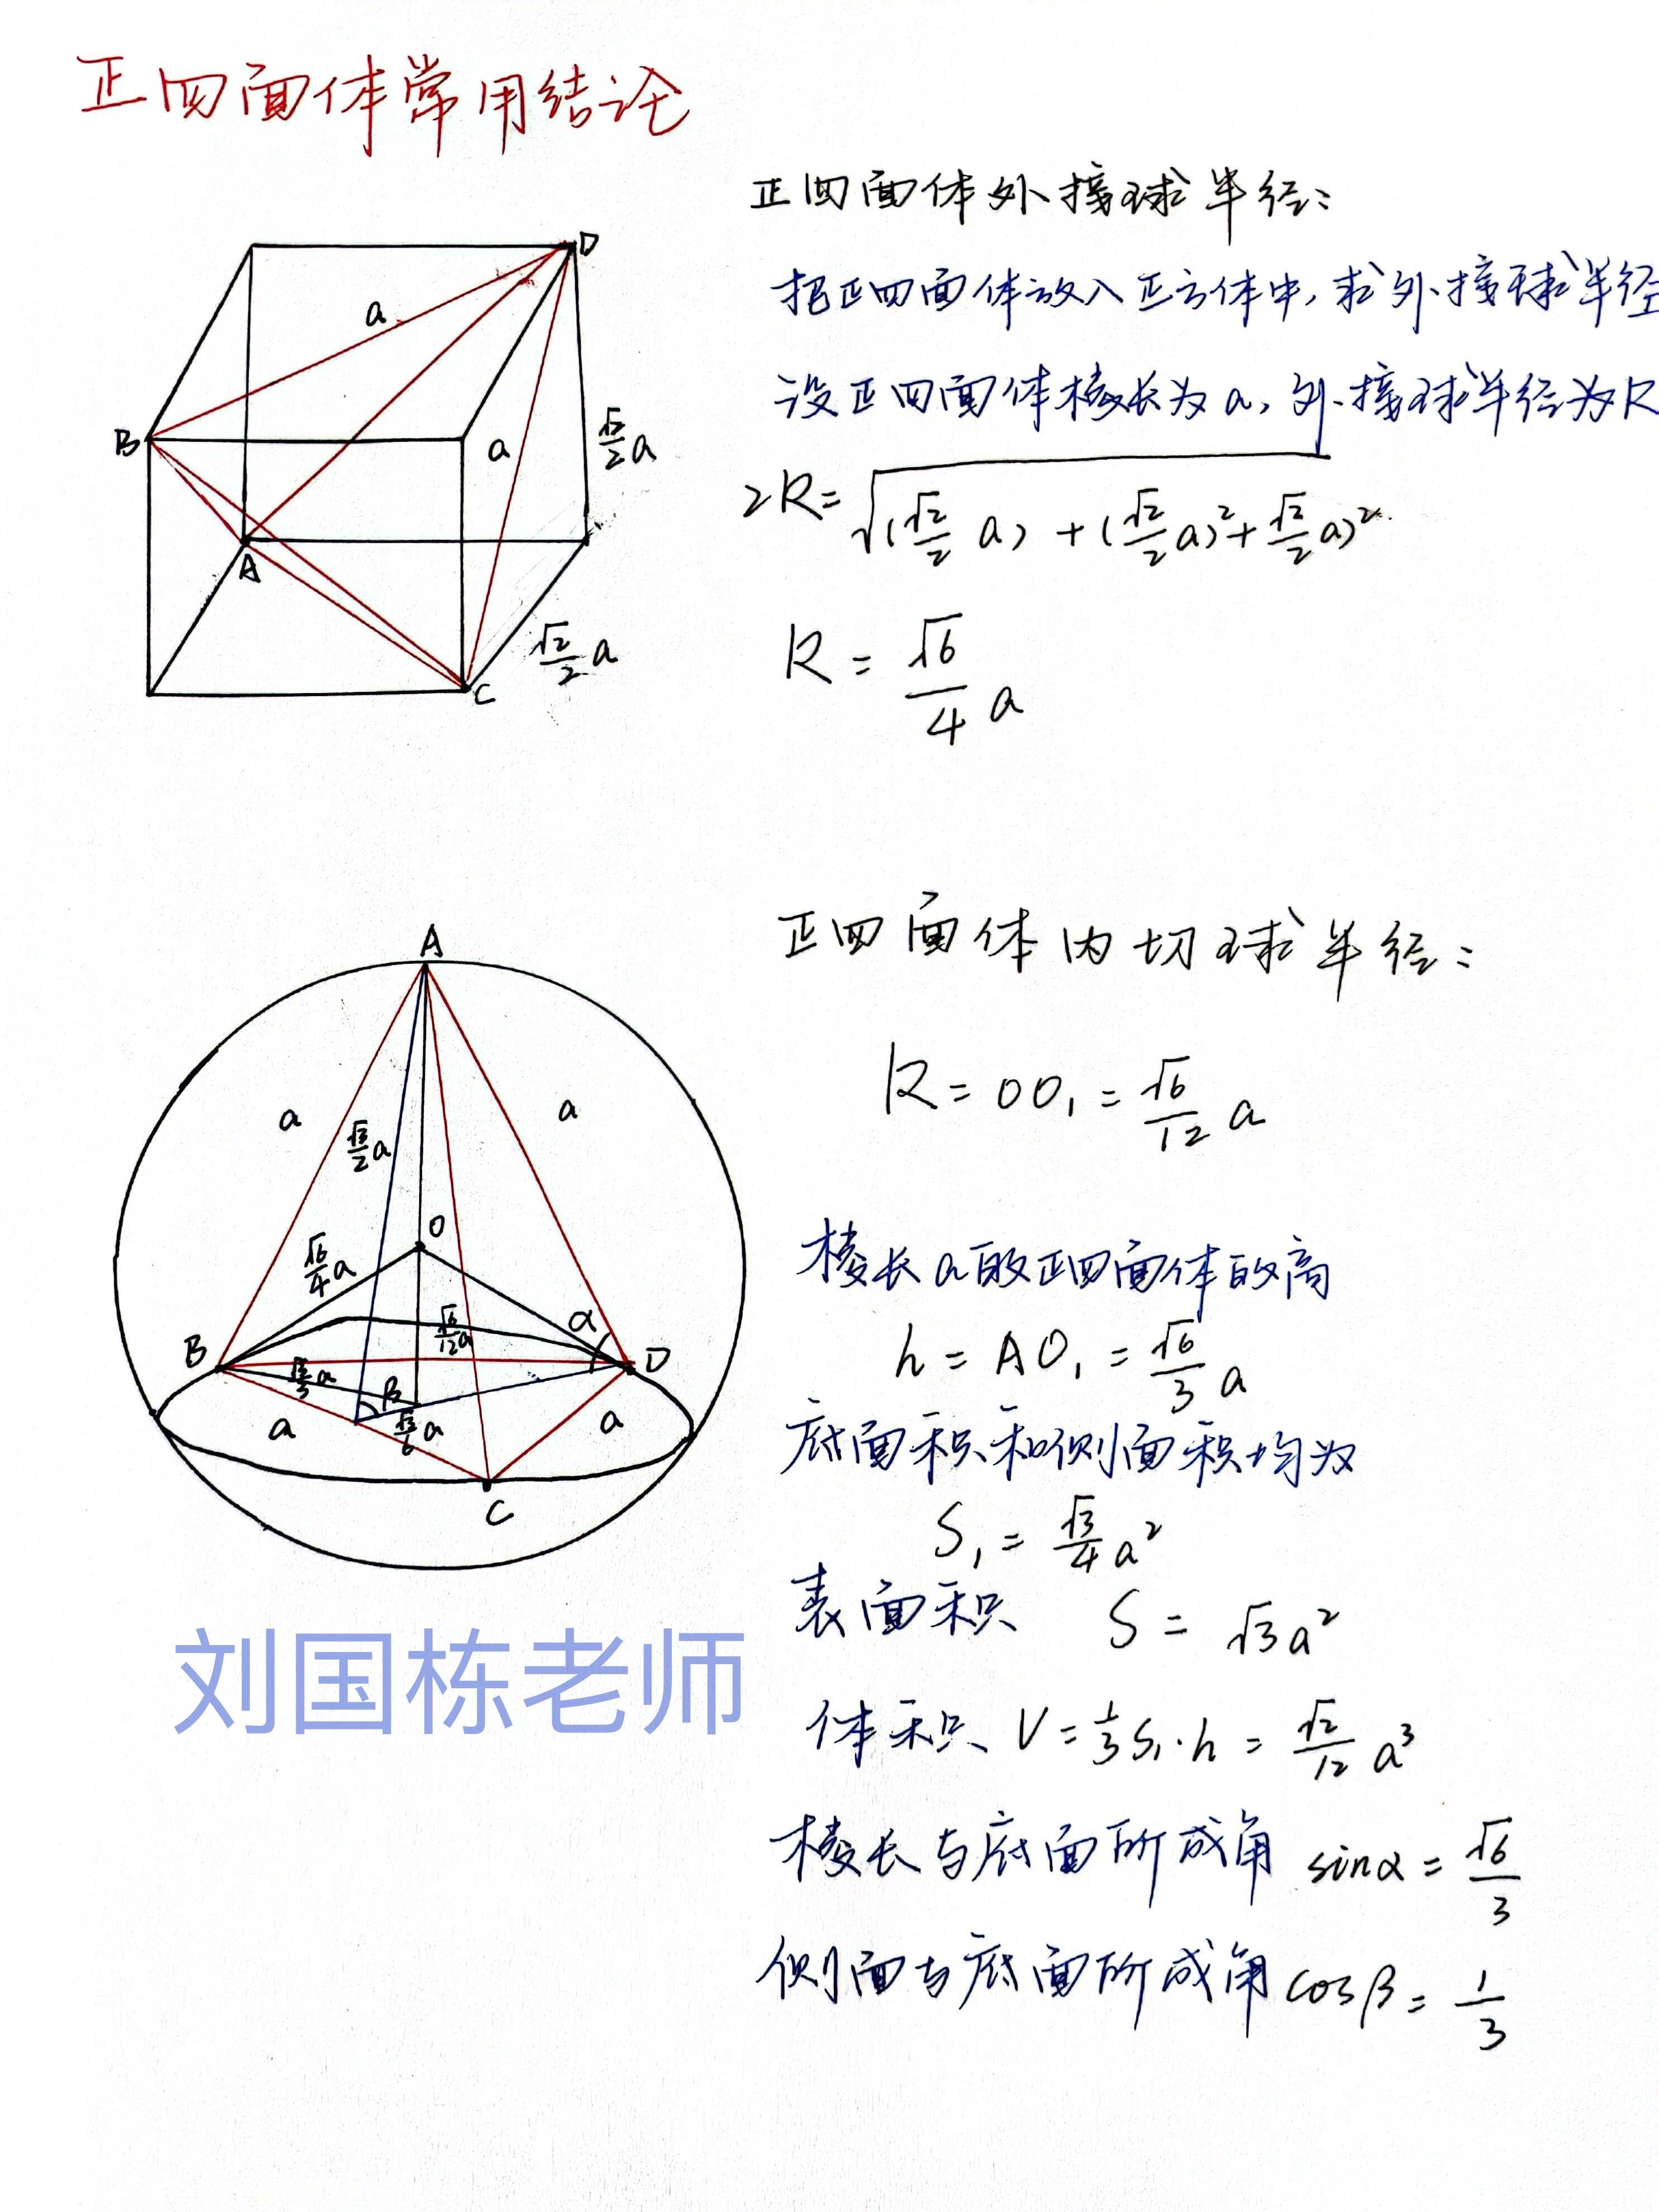 正四面体常用结论
正四面体外接球半径:
把正四面体放入正方体中,求外接球半径
设正四面体棱长为a,外接球半径为R
2R=√(√2/2 a) + (√2/2 a)²+ √2/2 a)²
R = √6/4 a
D
a
B
a
√2/2 a
A
√2/2 a
C
正四面体内切球半径:
R = OO₁ = √6/12 a
棱长a的正四面体的高
h = AO₁ = √6/3 a
底面积和侧面积均为
S₁ = √3/4 a²
表面积 S = √3a²
体积 V = 1/3 S₁·h = √2/12 a³
棱长与底面所成角 sinα = √6/3
侧面与底面所成角 cosβ = 1/3
A
a
a
√3/2 a
O
√6/4 a
√6/12 a
α
B
D
√3/3 a
β
√3/6 a
a
a
C
刘国栋老师